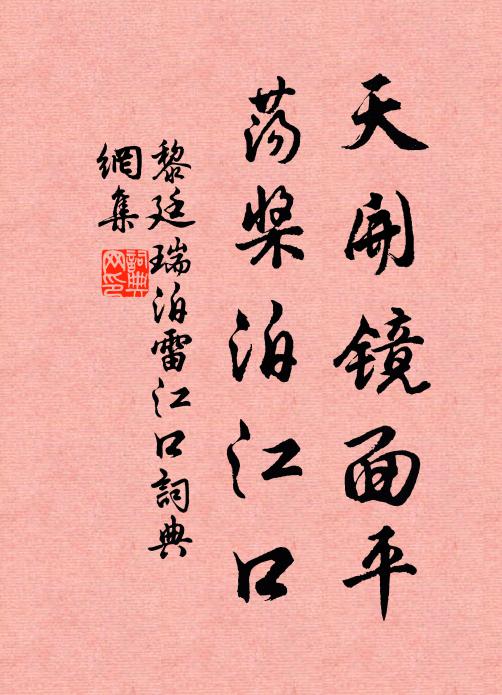 天開镜面平
荡槳泊江口
黎廷瑞泊雷江口詞典
網集
詞典
网印